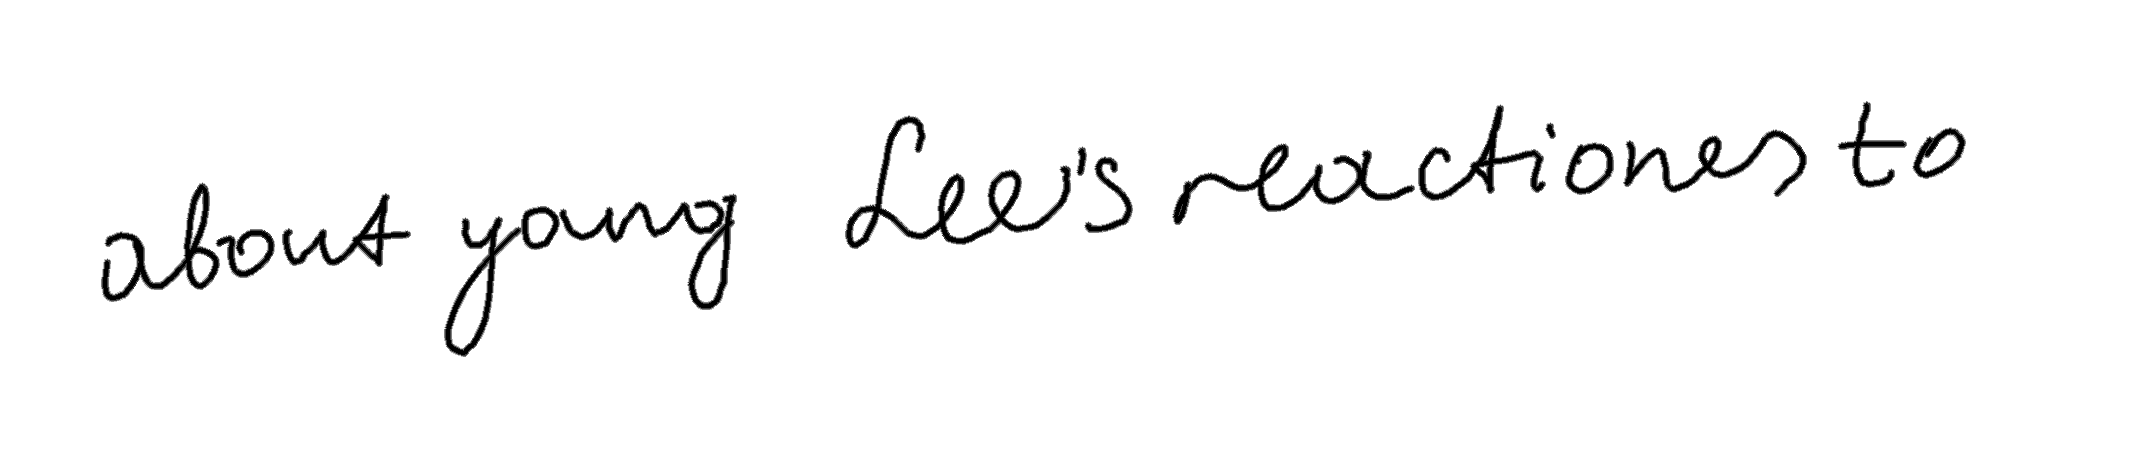 about young Lee's reactiones to